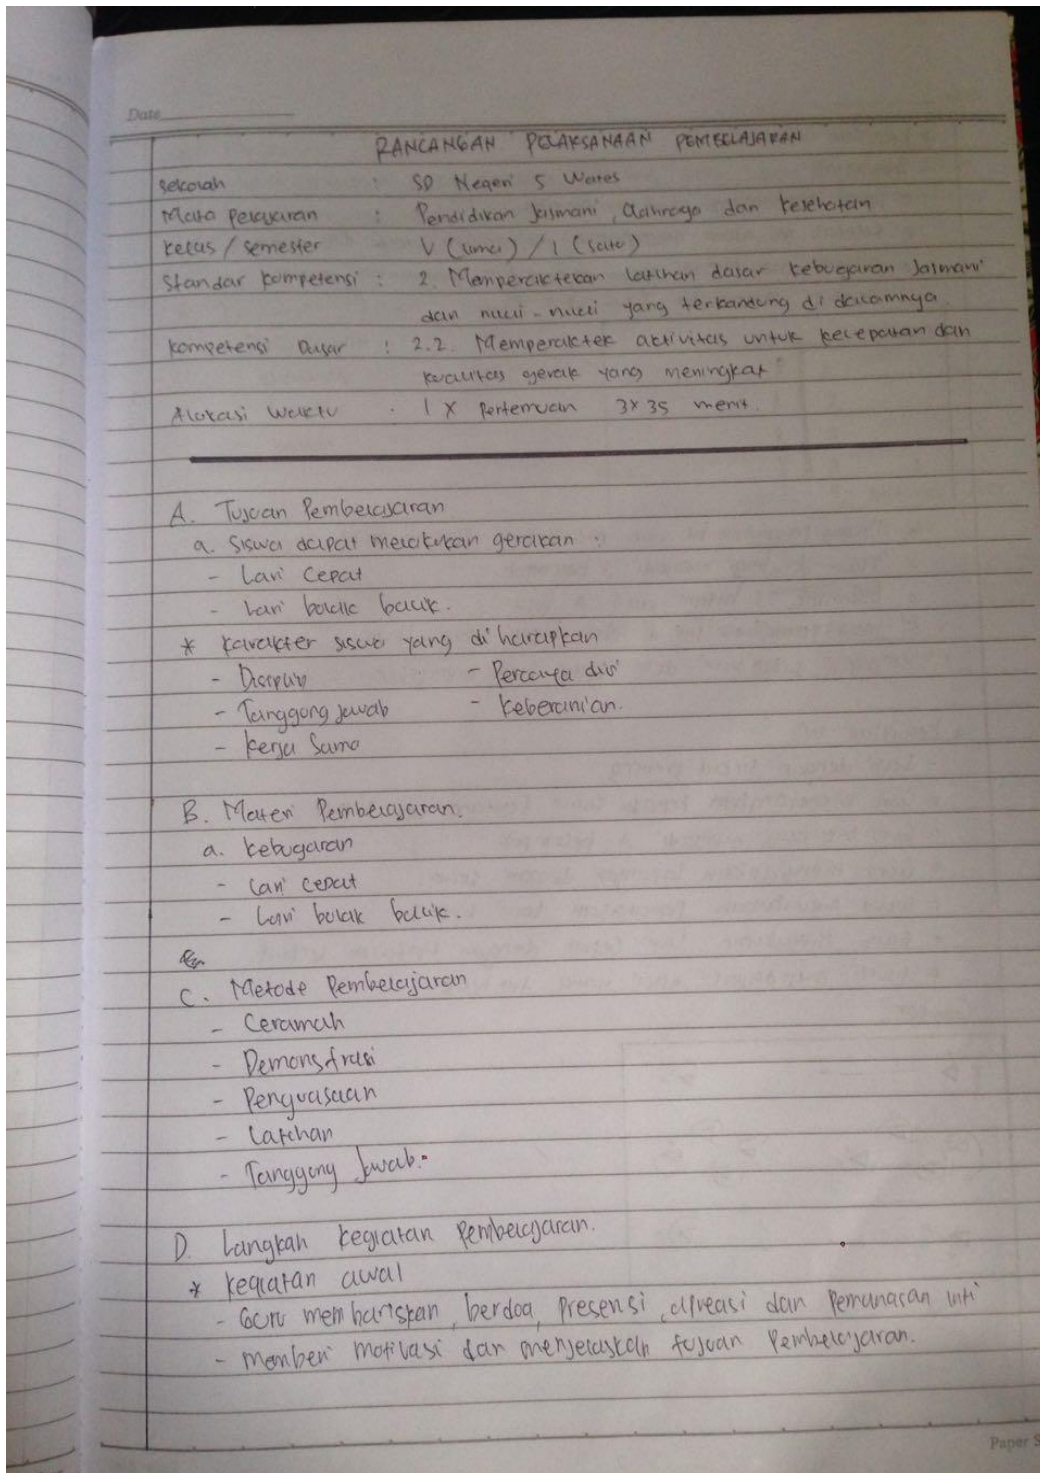 Date
RANCANGAN PELAKSANAAN PEMBELAJARAN
Sekolah : SD Negeri 5 Wates
Mata Pelajaran : Pendidikan Jasmani, Olahraga dan Kesehatan
Kelas / Semester V (Lima) / 1 (Satu)
Standar Kompetensi : 2. Memperaktekan latihan dasar kebugaran Jasmani
dan nilai-nilai yang terkandung di dalamnya.
Kompetensi Dasar : 2.2. Memperaktek aktivitas untuk kecepatan dan
kualitas gerak yang meningkat
Alokasi Waktu . 1 x Pertemuan 3x35 menit.
A. Tujuan Pembelajaran
a. Siswa dapat melakukan gerakan :
- Lari Cepat
- Lari bolak balik.
* Karakter siswa yang di harapkan
- Disiplin - Percaya diri
- Tanggong jawab - Keberanian.
- Kerja Sama
B. Materi Pembelajaran.
a. Kebugaran
- Lari Cepat
- Lari bolak balik.
C. Metode Pembelajaran
- Ceramah
- Demonstrasi
- Penguasaan
- Latihan
- Tanggong Jawab.
D. Langkah Kegiatan Pembelajaran.
* Kegiatan awal
- Guru membariskan, berdoa, presensi, apreasi dan Pemanasan inti
- memberi motivasi dan menjelaskan tujuan Pembelajaran.
Paper